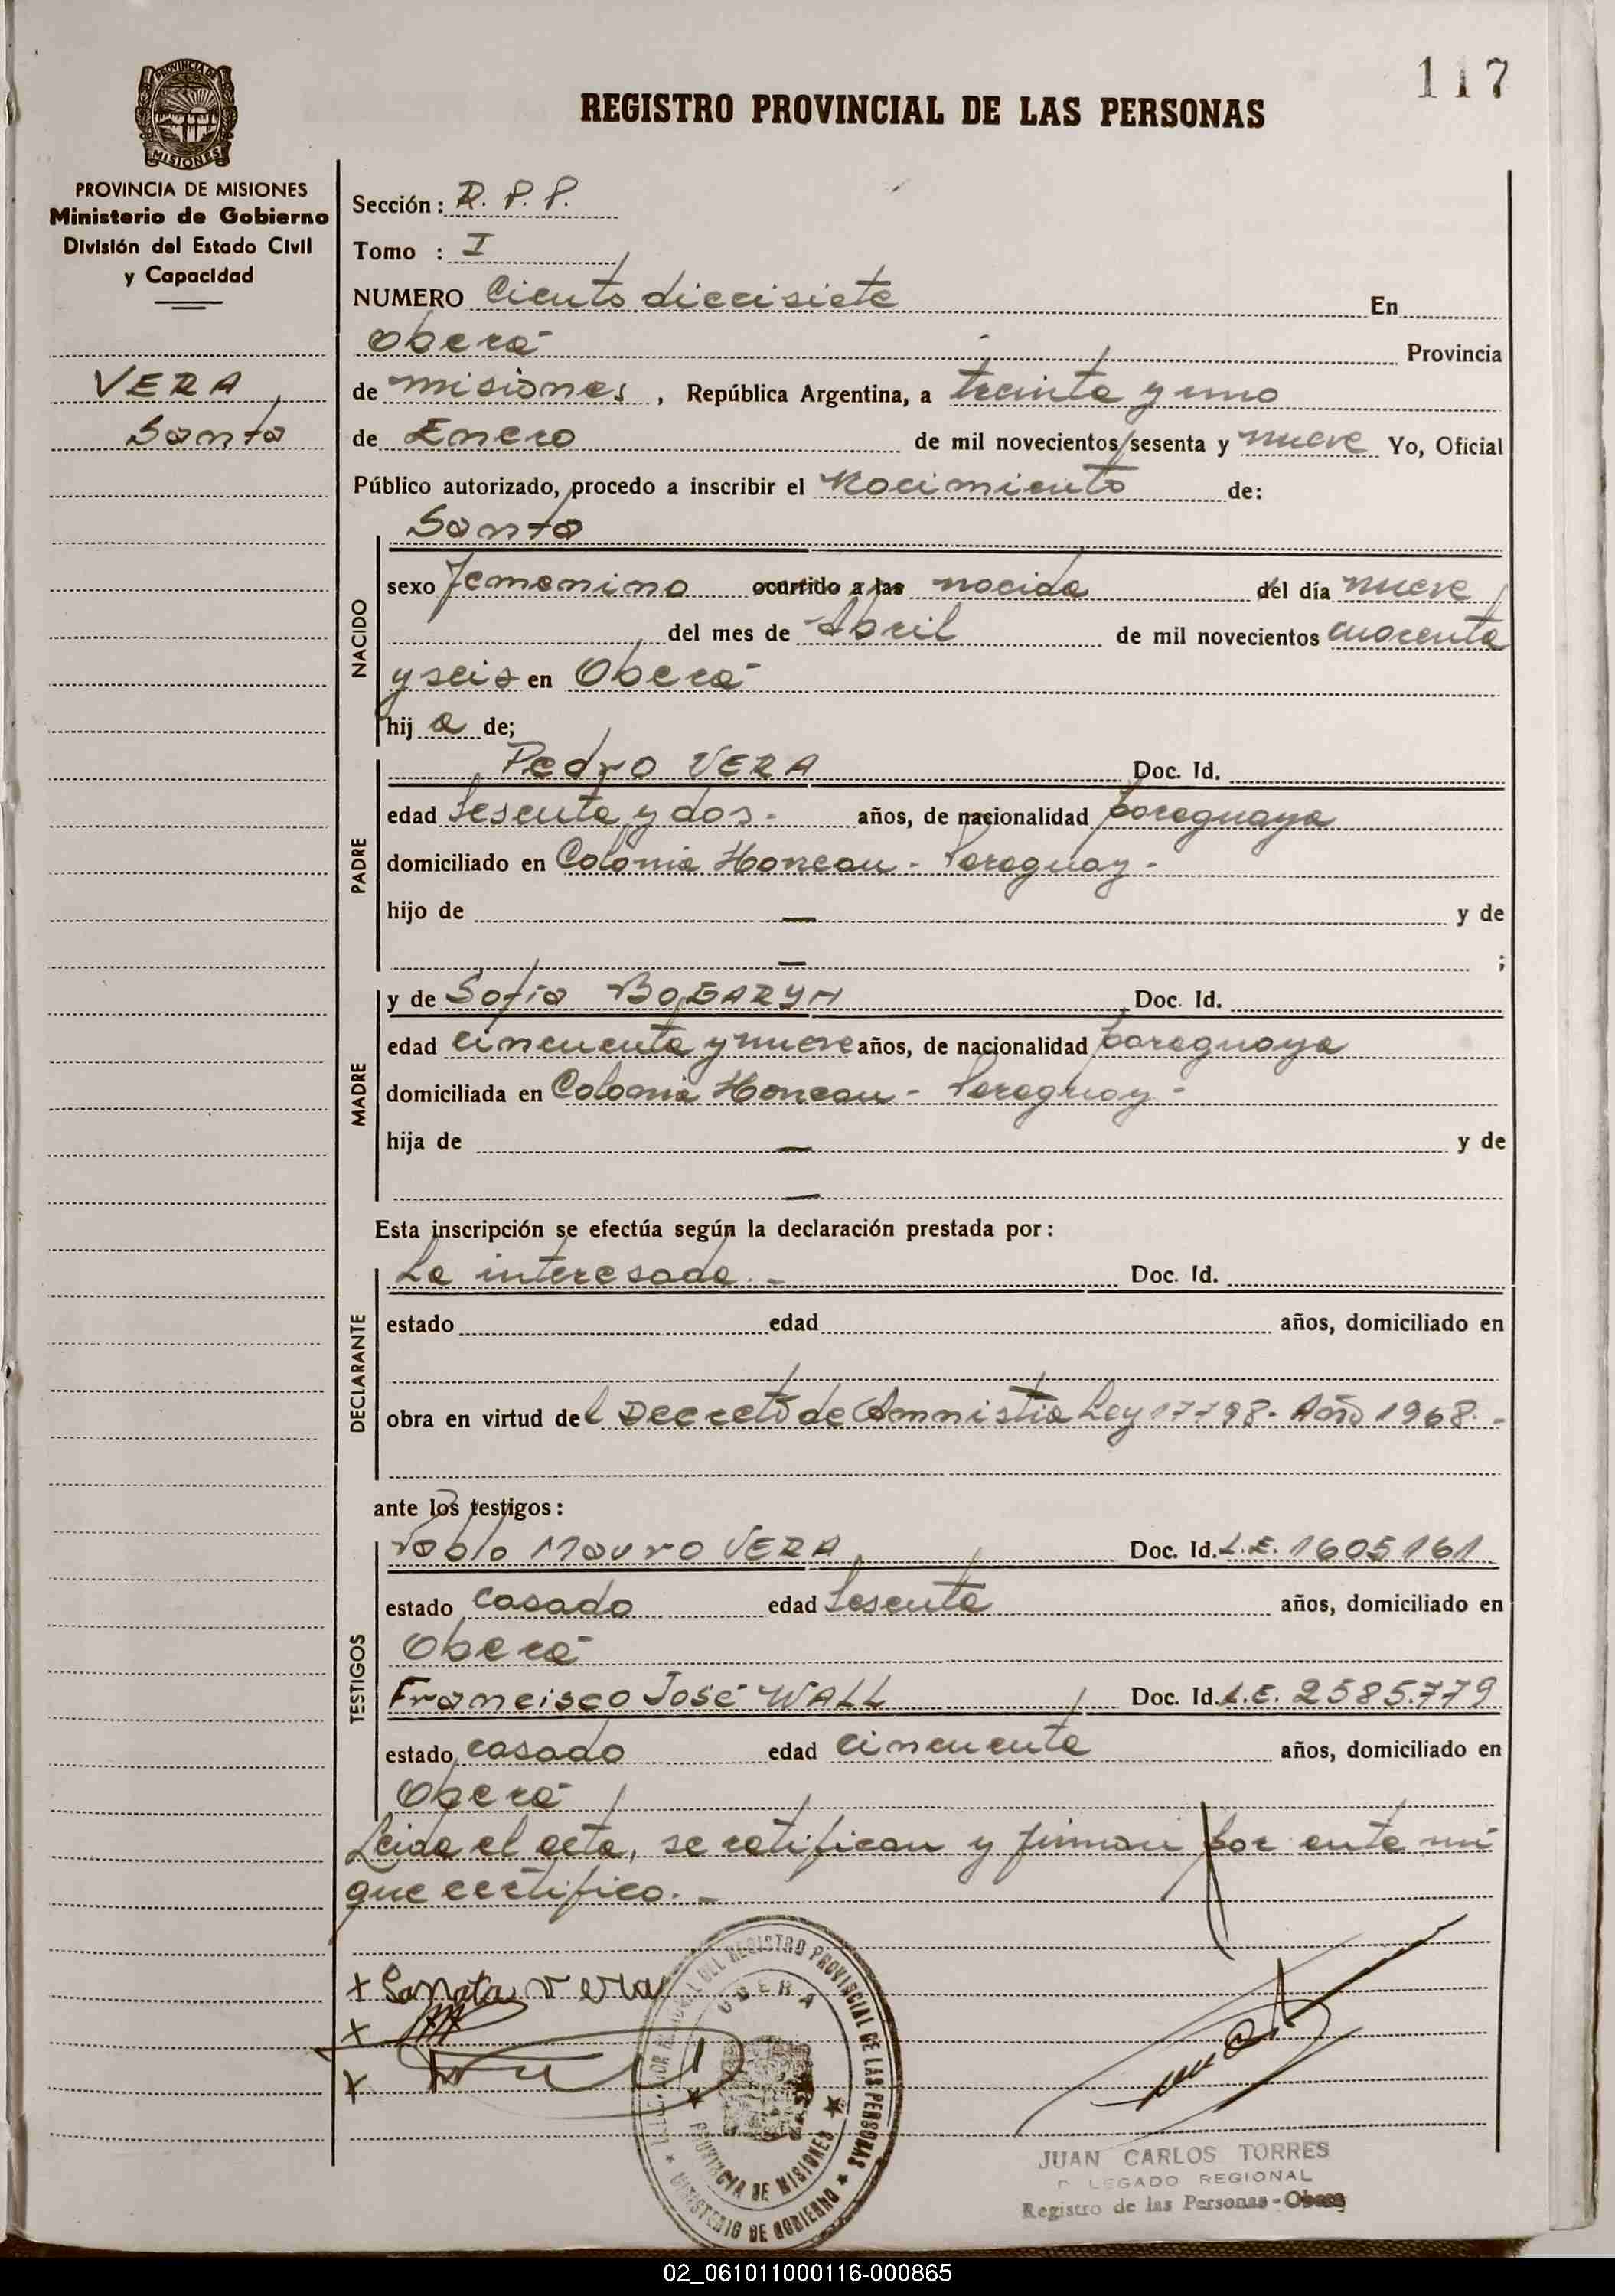 117
REGISTRO PROVINCIAL DE LAS PERSONAS
PROVINCIA DE
MISIONES
PROVINCIA DE MISIONES
Ministerio de Gobierno
División del Estado Civil
y Capacidad
VERA
Santa
Sección: R. P. P.
Tomo : I
NUMERO Ciento diecisiete En
Oberá Provincia
de misiones, República Argentina, a treinta y uno
de Enero de mil novecientos sesenta y nueve Yo, Oficial
Público autorizado, procedo a inscribir el Nacimiento de:
Santa
NACIDO
sexo femenino ocurrido a las nacida del día nueve
del mes de Abril de mil novecientos cuarenta
y seis en Oberá
hij a de;
Pedro VERA Doc. Id.
PADRE
edad Sesenta y dos.- años, de nacionalidad paraguaya
domiciliado en Colonia Honeau - Paraguay -
hijo de — y de
— ;
y de Sofía BOGARYN Doc. Id.
MADRE
edad cincuenta y nueve años, de nacionalidad paraguaya
domiciliada en Colonia Honeau - Paraguay -
hija de — y de
—
Esta inscripción se efectúa según la declaración prestada por:
La interesada.- Doc. Id.
DECLARANTE
estado edad años, domiciliado en
obra en virtud del Decreto de Amnistia Ley 17798- Año 1968.-
ante los testigos:
Pablo Mauro VERA Doc. Id. L.E. 1605161
TESTIGOS
estado casado edad Sesenta años, domiciliado en
Oberá
Francisco José WALL Doc. Id. L.E. 2585.779
estado casado edad cincuenta años, domiciliado en
Oberá
Leida el acta, se ratifican y firman por ante mi
que certifico.-
x Sanata vera
x
x
REGIONAL DEL REGISTRO PROVINCIAL DE LAS PERSONAS
OBERA
PROVINCIA DE MISIONES
MINISTERIO DE GOBIERNO
JUAN CARLOS TORRES
DELEGADO REGIONAL
Registro de las Personas - Oberá
02_061011000116-000865